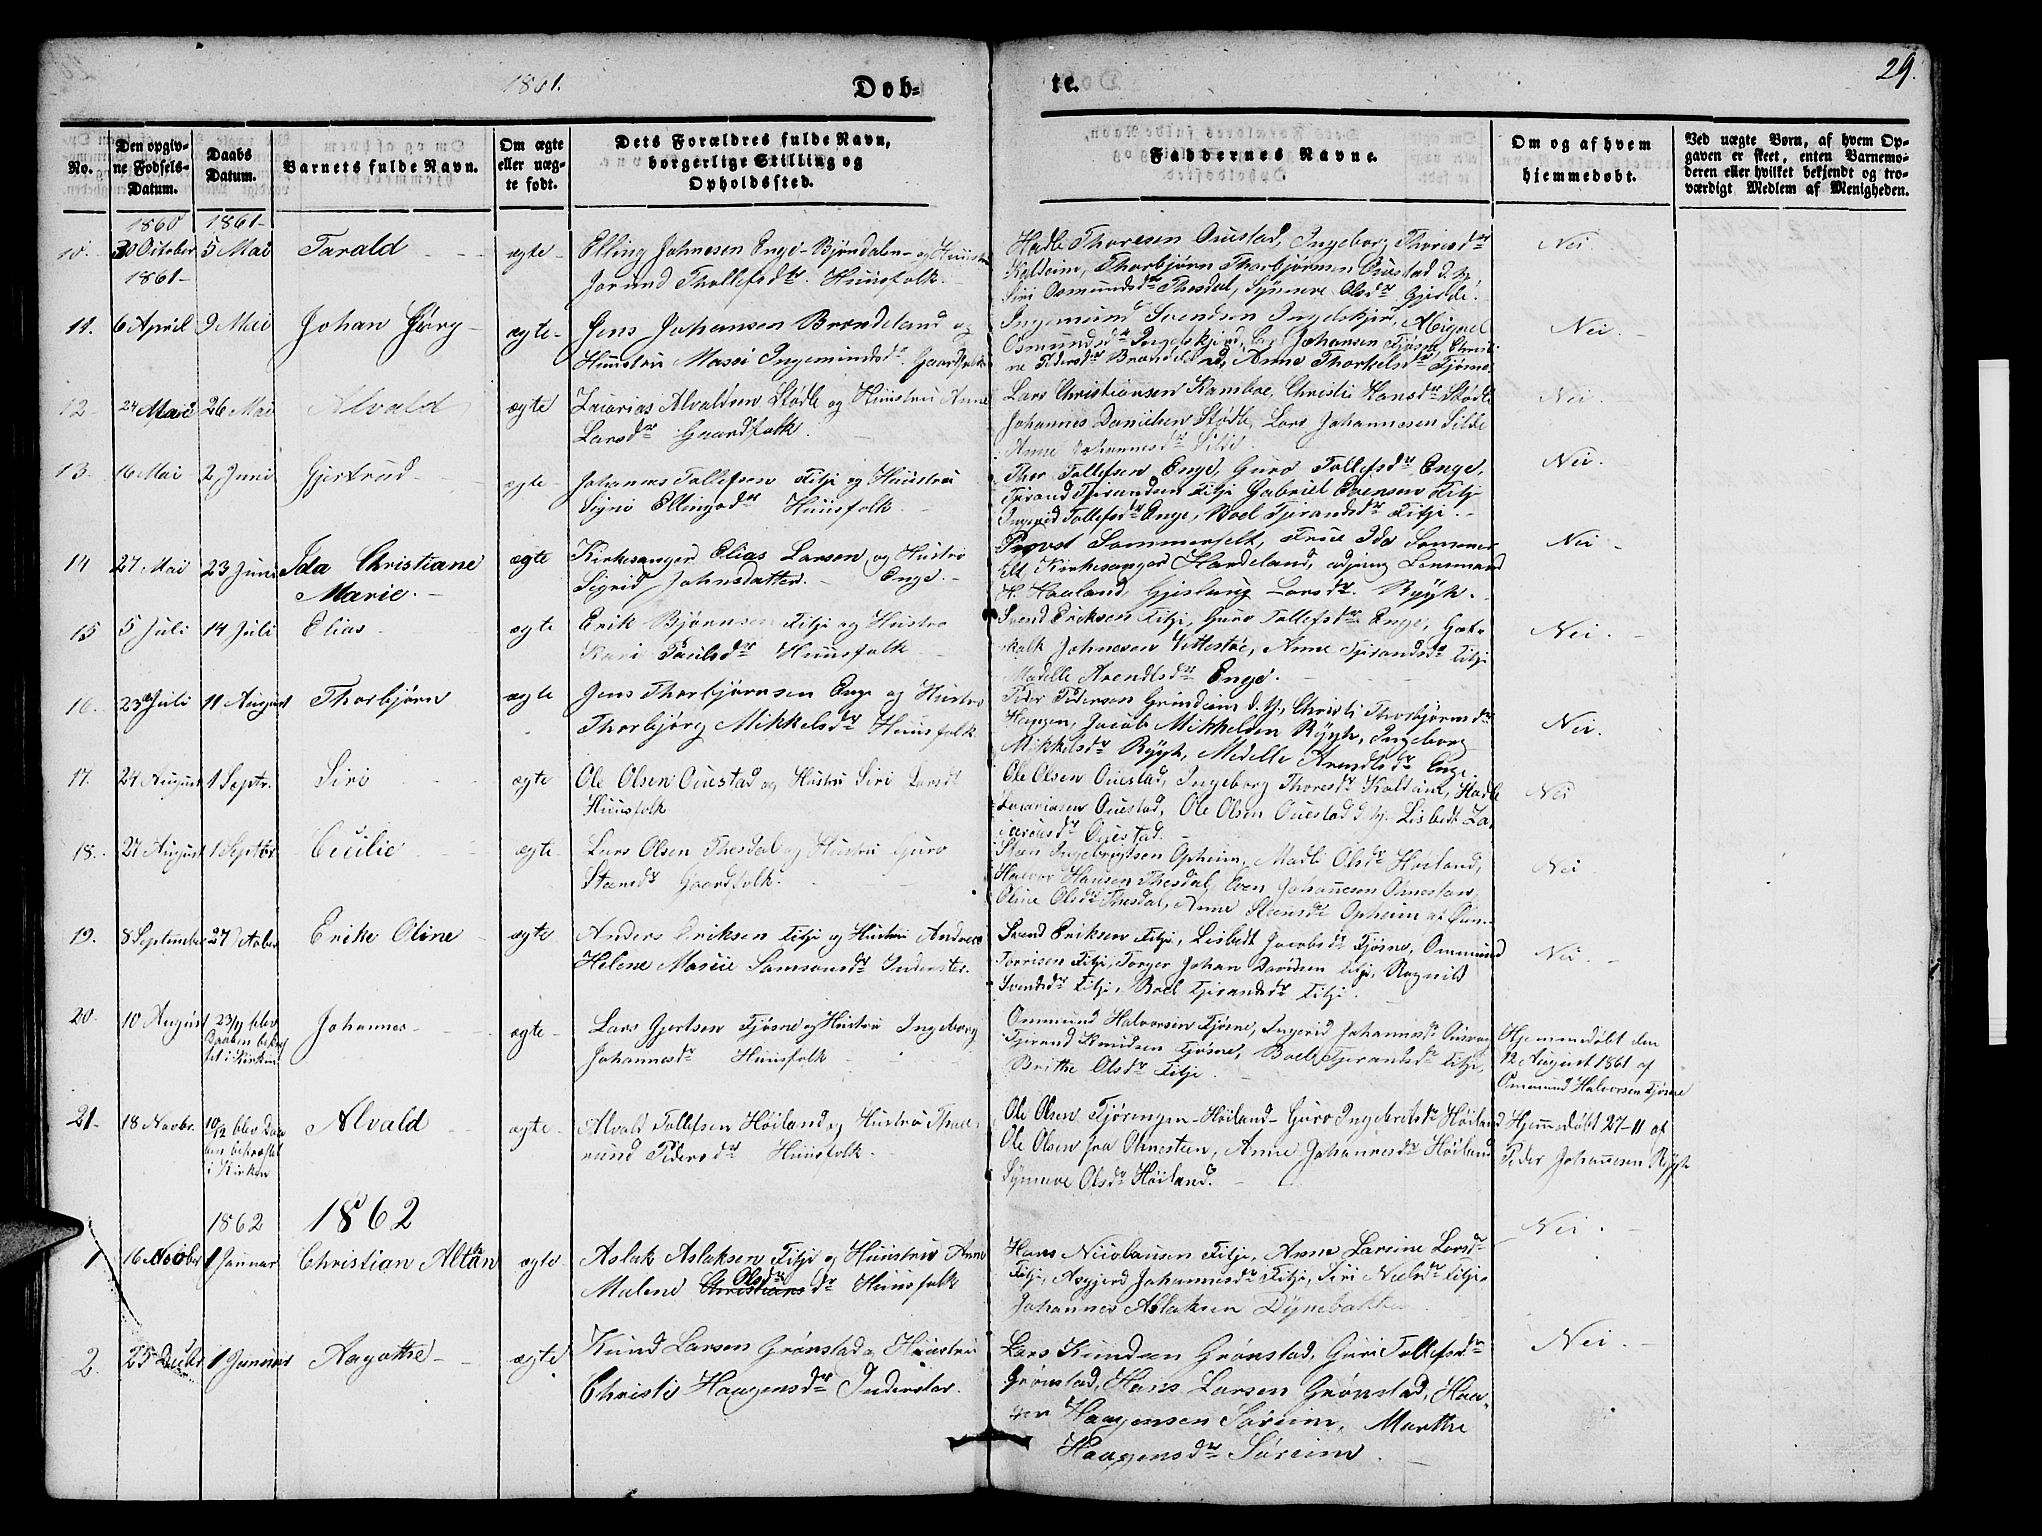 1861.
Døb-
te.
29.
No.
Den opgiv-
ne Fødsels-
Datum.
Daabs
Datum.
Barnets fulde Navn.
Om ægte
eller uæg-
te født.
Dets Forældres fulde Navn,
borgerlige Stilling og
Opholdssted.
Faddernes Navne.
Om og af hvem
hjemmedøbt.
Ved uægte Børn, af hvem Op-
gaven er skeet, enten Barnemo-
deren eller hvilket bekjendt og tro-
værdigt Medlem af Menigheden.
1860 1861-
10. 30 October 5 Mai Tarald ægte- Elling Johnesen Enge-Bjøndalen- og Hustru
Jorund Thollefsdtr. Huusfolk.
Hadle Thoresen Ouestad, Ingeborg Thoresdtr
Kalheim, Thorbjørn Thorbjørnsen Ouestad d. y.
Siri Osmundsdtr Thesdal, Synneve Olsdtr Gjerde.
Nei
1861-
11. 6 April 9 Mai Johan Gjørg- ægte- Jens Johansen Brandeland og
Huustru Massi Ingemundsdtr. Gaardfolk
Ingemund Svendsen Ingelskjer, Abigael
Osmundsdtr Ingelskjerd, Johansen Fjøsne, Christi-
ne Pedersdtr Brandeland, Anne Thorkelsdtr Fjøsne.
Nei.
12. 24 Mai 26 Mai Alvald ægte Zacarias Alvaldsen Stødle og Huustru Anne
Larsdtr Gaardfolk.
Lars Christiansen Ramboe, Christi Hansdtr Stødle
Johannes Danielsen Stødle, Lars Johannesen Silde
Anne Johannesdtr Silde.
Nei.
13. 16 Mai 2 Juni Gjertrud ægte- Johannes Tollefsen Fitje og Huustru
Signi Ellingsdtr Huusfolk.
Thor Tollefsen Enge, Guro Tollefsdtr Enge,
Tjerand Tjerandsen Fitje Gabriel Evensen Fitje
Ingerid Tollefsdtr Enge, Boel Tjerandsdtr Fitje.
Nei.
14 27 Mai 23 Juni Ida Christiane
Marie.
ægte Kirkesanger Elias Larsen og Hustru
Sigrid Johnsdatter. Enge.
Provst Sommerfelt, Frue Ida Sommer-
felt Kirkesanger Hardeland, Lensmand
H. Haaland, Larsdtr. Rygh.
Nei
15 5 Juli 14 Juli Elias ægte Erik Bjørnsen Fitje og Hustru
Kari Paulsdtr Huusfolk
Svend Eriksen Fitje, Guro Tollefsdtr Enge, Got-
skalk Johnesen Vettestøe, Anne Tjerandsdtr Fitje
Medelle Arendtsdtr Enge.
Nei.
16. 23 Juli 11 August Thorbjørn ægte Jens Thorbjørnsen Enge og Hustru
Thorbjørg Mikkelsdtr Huusfolk
Peder Pedersen Grindeim d. y., Christi Thorbjørnsdtr
Haugen, Jacob Mikkelsen Rygh, Ingeborg
Mikkelsdtr Rygh, Medelle Arendtsdtr Enge.
Nei.
17. 24 August 1 Septr. Siri ægte Ole Olsen Ouestad og Hustru Siri Larsdt
Huusfolk
Ole Olsen Ouestad, Ingeborg Thoresdtr Kaldeim, Hadle
Zacariasen Ouestad, Ole Olsen Ouestad d. y. Lisbedt Za-
cariasdtr Ouestad.
Nei
18. 27 August 1 Septbr Cecilie ægte- Lars Olsen Thesdal og Hustru Guro
Steensdtr Gaardfolk.
Steen Ingebrigtsen Opheim, Madli Olsdtr Høiland,
Halvor Hansen Thesdal, Even Johannesen Ohnestøen,
Oline Olsdtr Thesdal, Anne Steensdtr Opheim
Nei
19. 8 September 27 Erike Oline ægte Anders Eriksen Fitje og Hustru Andrea
Helene Marie Samsonsdtr Inderster.
Svend Eriksen Fitje, Lisbedt Jacobsdtr Fjøsne, Ommund
Torrisen Fitje, Torger Johan Davidsen Fitje, Ragnild
Svendsdtr Fitje, Boel Tjerandsdtr Fitje.
Nei.
20. 10 August 23/9 blev
Daaben bekræf
tet i Kirken
Johannes ægte- Lars Gjertsen Fjøsne og Hustru Ingeborg
Johannesdtr Huusfolk
Ommund Halvorsen Fjøsne, Ingerid Johannesdtr
Tjerand Knudsen Fjøsne, Boel Tjerandsdtr Fitje,
Brithe Olsdtr Fitje.
Hjemmedøbt den
12 August 1861 af
Ommund Halvorsen Fjøsne
21. 18 Novbr. 10/12 blev Daa
ben bekræftet
i Kirken
Alvald ægte- Alvald Tollefsen Høiland og Hustru
Pedersdtr Huusfolk.
Ole Olsen Høiland- Guro Ingebretsdtr Høiland
Ole Olsen fra Ohnesteen, Anne Johannesdtr Høiland
Synneve Olsdtr Høiland.
Hjemedøbt 27-11 af
Peder Johannesen Rygh
1862 1862
1 16 Novbr 1 Januar Christian Altan ægte Aslak Aslaksen Fitje og Huustru Anne
Malene Christians Olsdtr Huusfolk
Hans Nicolausen Fitje, Anne Larsine Larsdtr
Fitje, Asgjerd Johannesdtr Fitje, Siri Neelsdtr Fitje
Johannes Aslaksen Dynebakke
Nei.
2. 25 Decbr 1 Januar Aagothe- ægte Knud Larsen Grønstad og Huustru
Christi Haagensdtr Inderster.
Lars Knudsen Grønstad, Guri Tollefsdtr
Grønstad, Hans Larsen Grønstad, Haa-
gen Haagensen Søreim, Marthe
Haagensdtr Søreim
Nei.